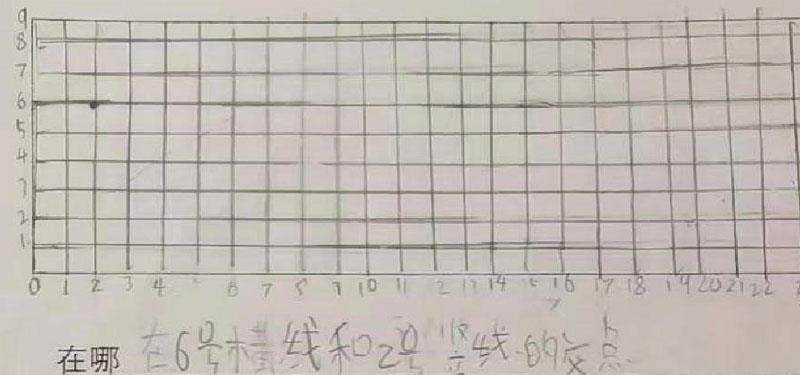 9
8
7
6
5
4
3
2
1
0 1 2 3 4 5 6 7 8 9 10 11 12 13 14 15 16 17 18 19 20 21 22
在哪 在6号横线和2号竖线的交点